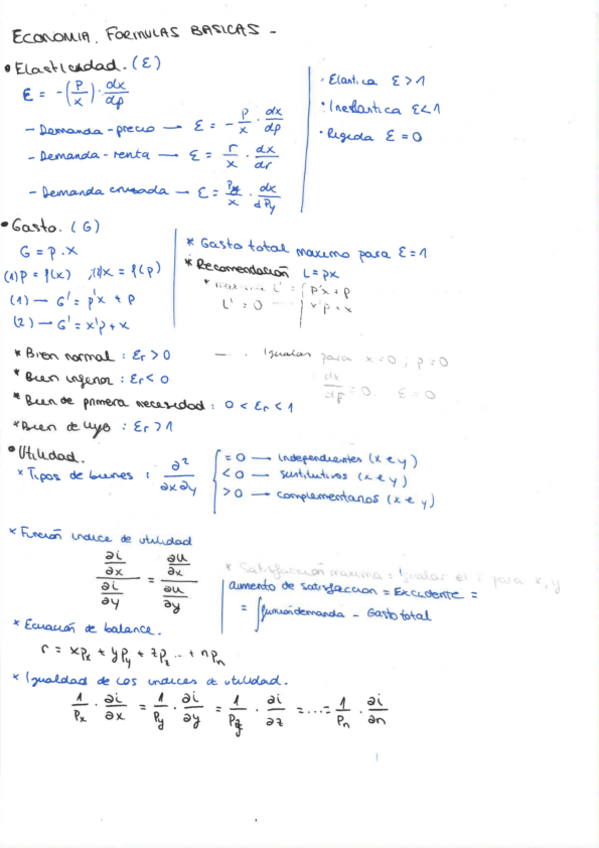 ECONOMIA. FORMULAS BASICAS -
• Elasticidad. (Ɛ)
Ɛ = -(P/x) · dx/dp
- Demanda-precio → Ɛ = - P/x · dx/dp
- Demanda-renta → Ɛ = r/x · dx/dr
- Demanda cruzada → Ɛ = Py/x · dx/dPy
· Elastica Ɛ>1
· Inelastica Ɛ<1
· Rigida Ɛ=0
• Gasto. (G)
G = p · x
(1) P = f(x) (2) x = f(p)
(1) — G' = p'x + p
(2) — G' = x'p + x
* Gasto total maximo para Ɛ=1
* Recomendación L = px
L' = { p'x + p
L' = 0 { x'p + x
* Bien normal : Ɛr > 0
* Bien inferior : Ɛr < 0
* Bien de primera necesidad : 0 < Ɛr < 1
* Bien de lujo : Ɛr > 1
Igualar para x=0 ; p=0
dx/dp = 0. Ɛ=0
• Utilidad.
* Tipos de bienes : ∂²/∂x∂y
= 0 → independientes (x e y)
< 0 → sustitutivos (x e y)
> 0 → complementarios (x e y)
* Función indice de utilidad
(∂i/∂x)/(∂i/∂y) = (∂u/∂x)/(∂u/∂y)
* Satisfacción maxima = Igualar el i para x, y
aumento de satisfaccion = Excedente =
= ∫función demanda - Gasto total
* Ecuación de balance.
r = xPx + yPy + zPz ... + nPn
* Igualdad de los indices de utilidad.
1/Px · ∂i/∂x = 1/Py · ∂i/∂y = 1/Pz · ∂i/∂z = ... = 1/Pn · ∂i/∂n